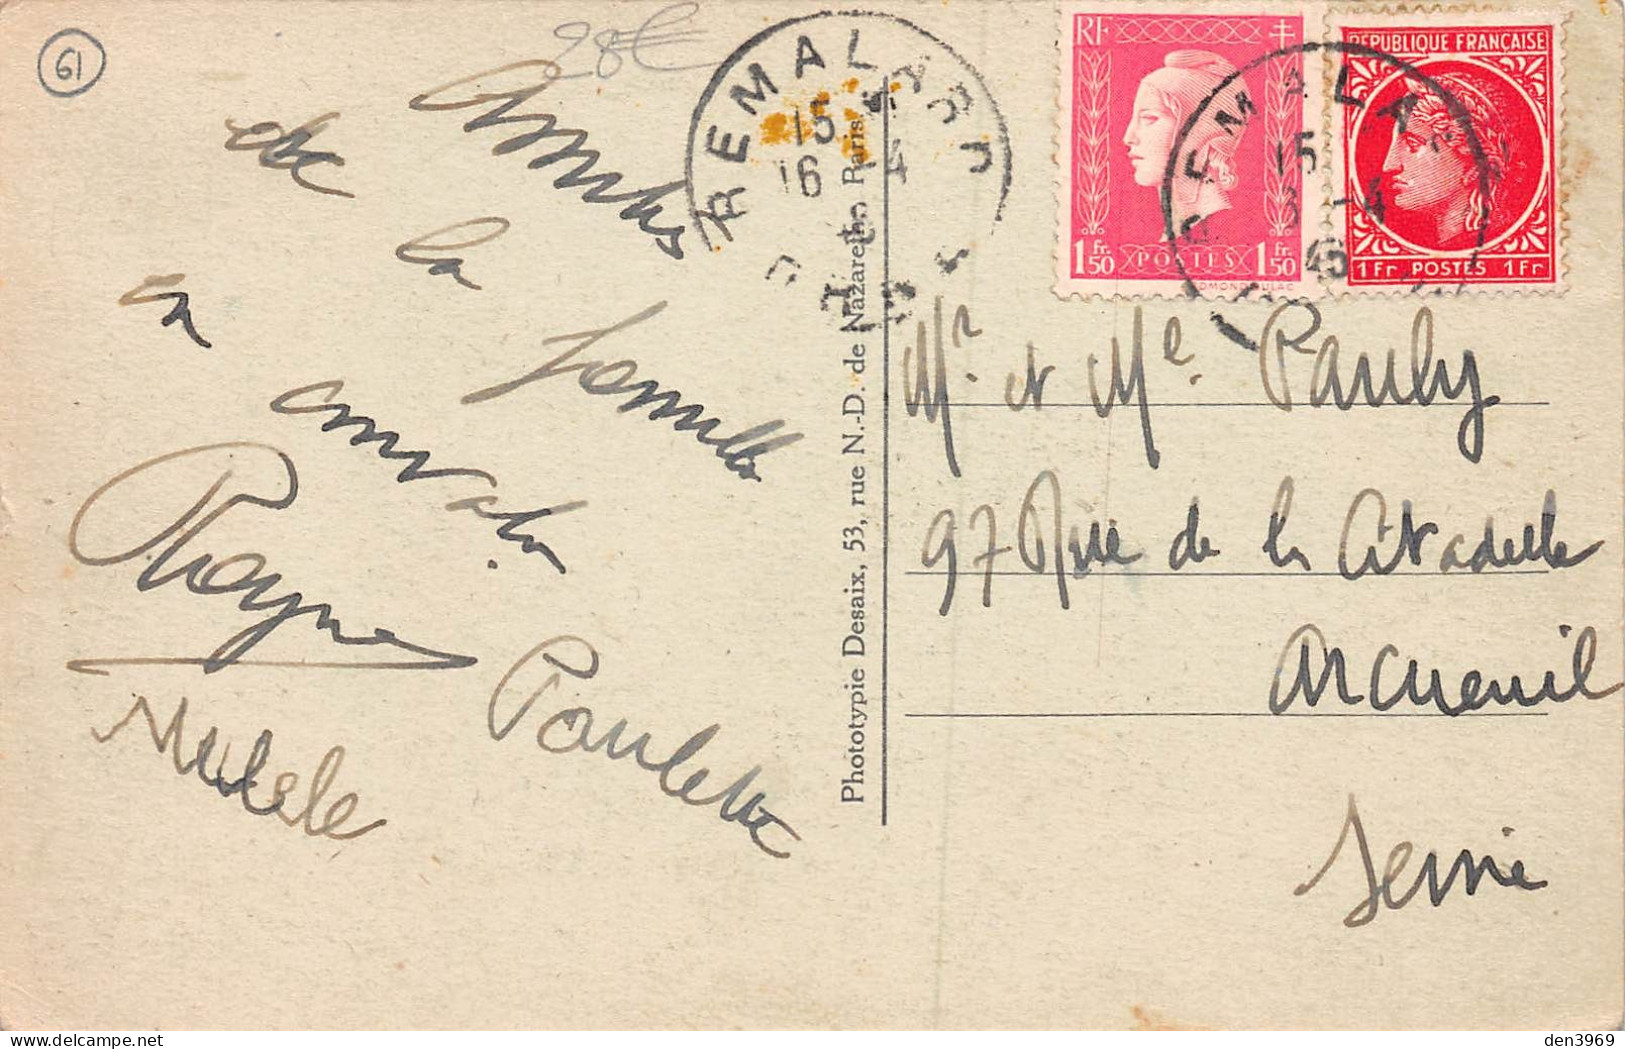 61
28€
Amitiés
de la famille
en
Paulette
REMALARD
15
16 -4
ORNE
Phototypie Desaix, 53, rue N.-D. de Nazareth, Paris
RF
1 Fr. 50 POSTES 1 Fr. 50
EDMOND DULAC
RÉPUBLIQUE FRANÇAISE
1 Fr POSTES 1 Fr
REMALA
15
-4
45
Mr. et Me. Pauly
97 Rue de la Citadelle
Arcueil
Seine
den3969